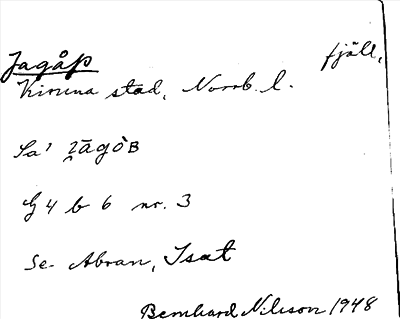 Jagåp fjäll,
Kiruna stad, Norrb. l.
Sa' 
G 4 b 6 nr. 3
Se. Abran, Isat
Bernhard Nilsson 1948